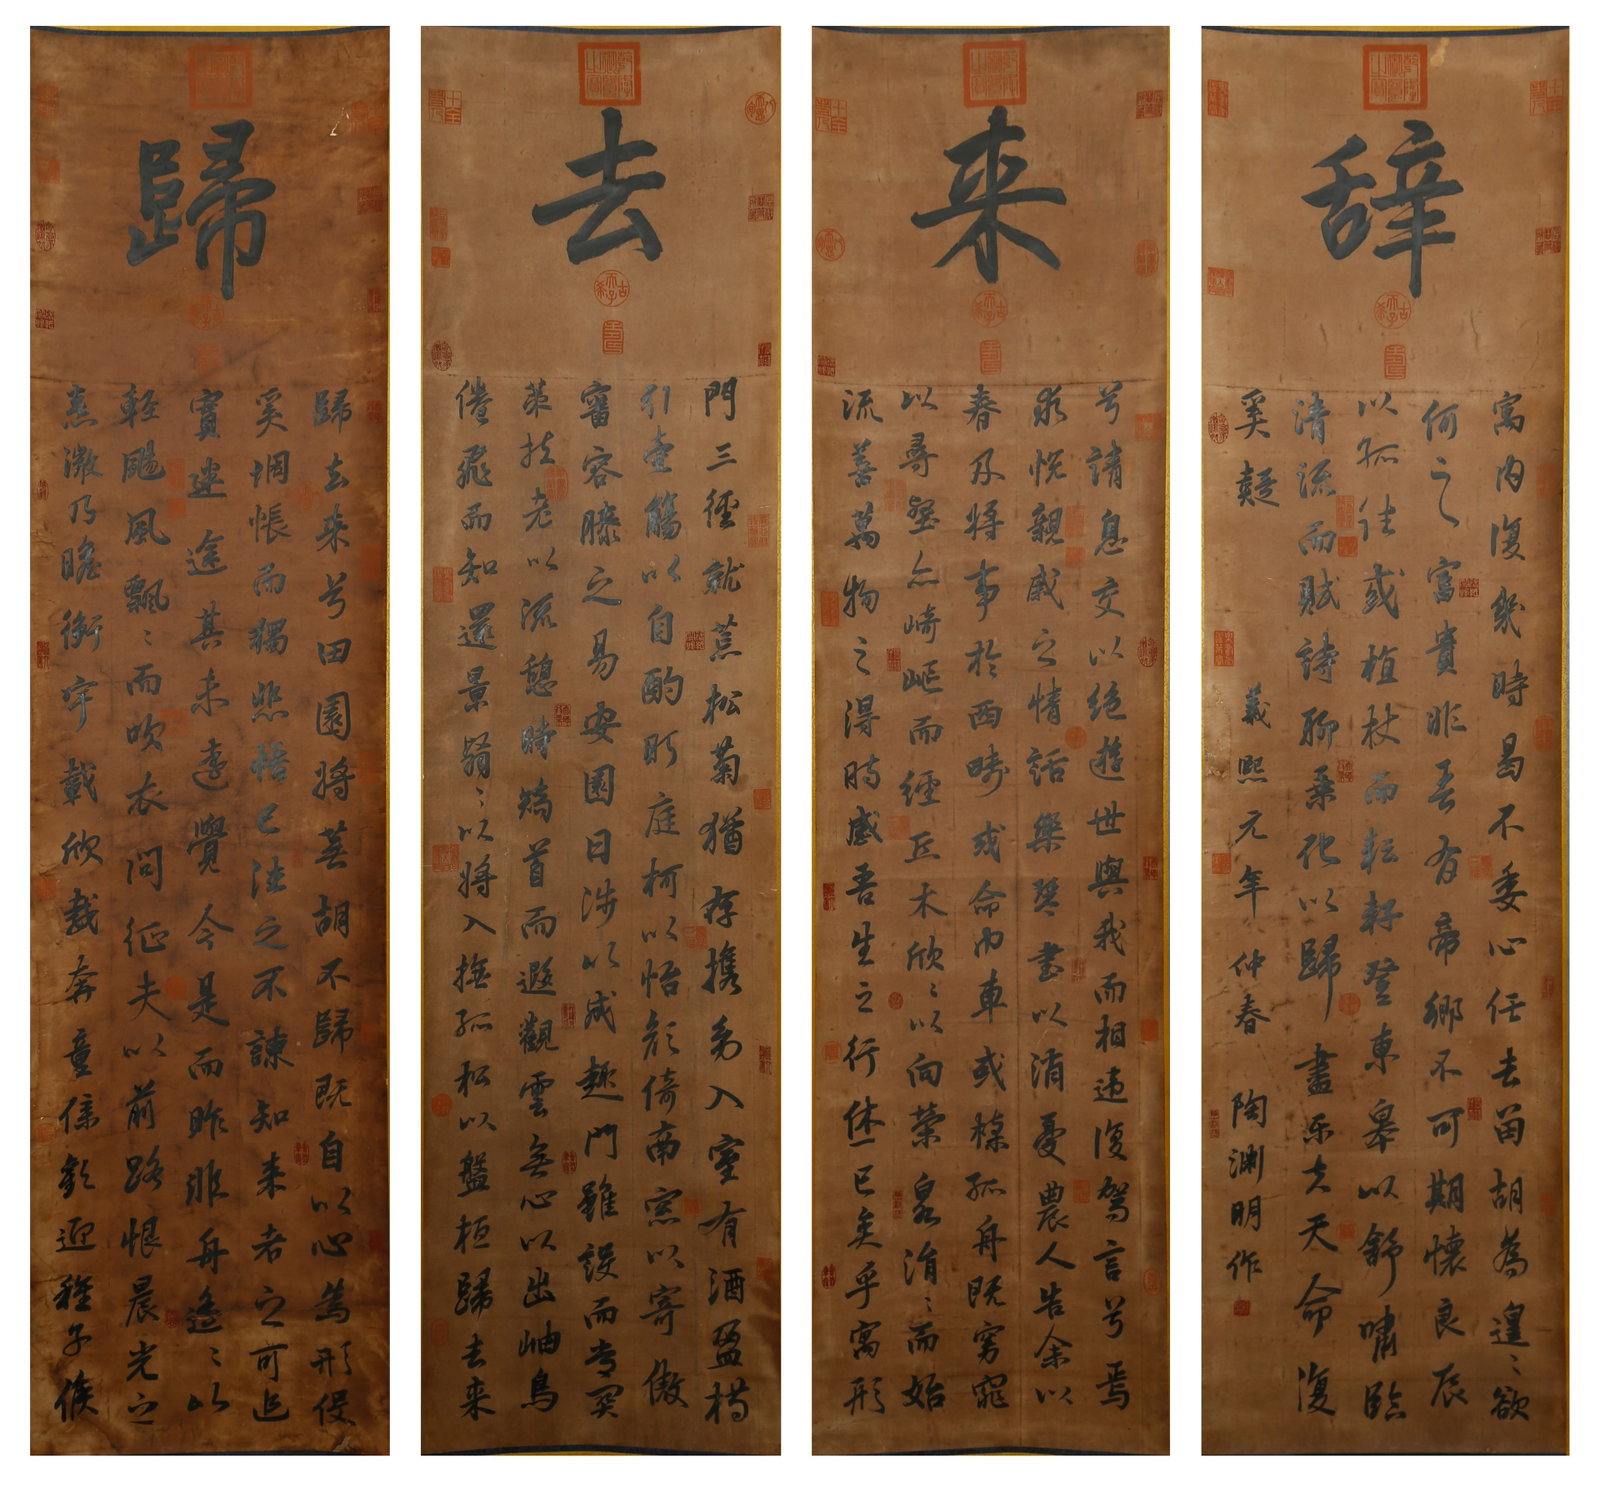 歸
歸去来兮田園將蕪胡不歸既自以心為形役
奚惆悵而獨悲悟已往之不諫知来者之可追
實迷途其未遠覺今是而昨非舟遙〻以
輕颺風飄〻而吹衣问征夫以前路恨晨光之
熹微乃瞻衡宇載欣載奔童僕歡迎稚子候
去
門三徑就荒松菊猶存携幼入室有酒盈樽
引壺觴以自酌眄庭柯以怡顏倚南窓以寄傲
審容膝之易安園日涉以成趣門雖設而常関
策扶老以流憩時矯首而遐觀雲無心以出岫鳥
倦飛而知還景翳〻以將入撫孤松以盤桓歸去来
来
兮請息交以絶遊世與我而相違復駕言兮焉
求悅親戚之情話樂琴書以消憂農人告余以
春及將事於西疇或命巾車或棹孤舟既窈窕
以尋壑亦崎嶇而經丘木欣〻以向榮泉涓〻而始
流善萬物之得時感吾生之行休已矣乎寓形
辞
寓内復幾時曷不委心任去留胡為遑〻欲
何之富貴非吾有帝鄉不可期懷良辰
以孤往或植杖而耘耔登東皋以舒嘯臨
清流而賦詩聊乘化以歸盡樂夫天命復
奚疑 義熙元年仲春 陶渊明作